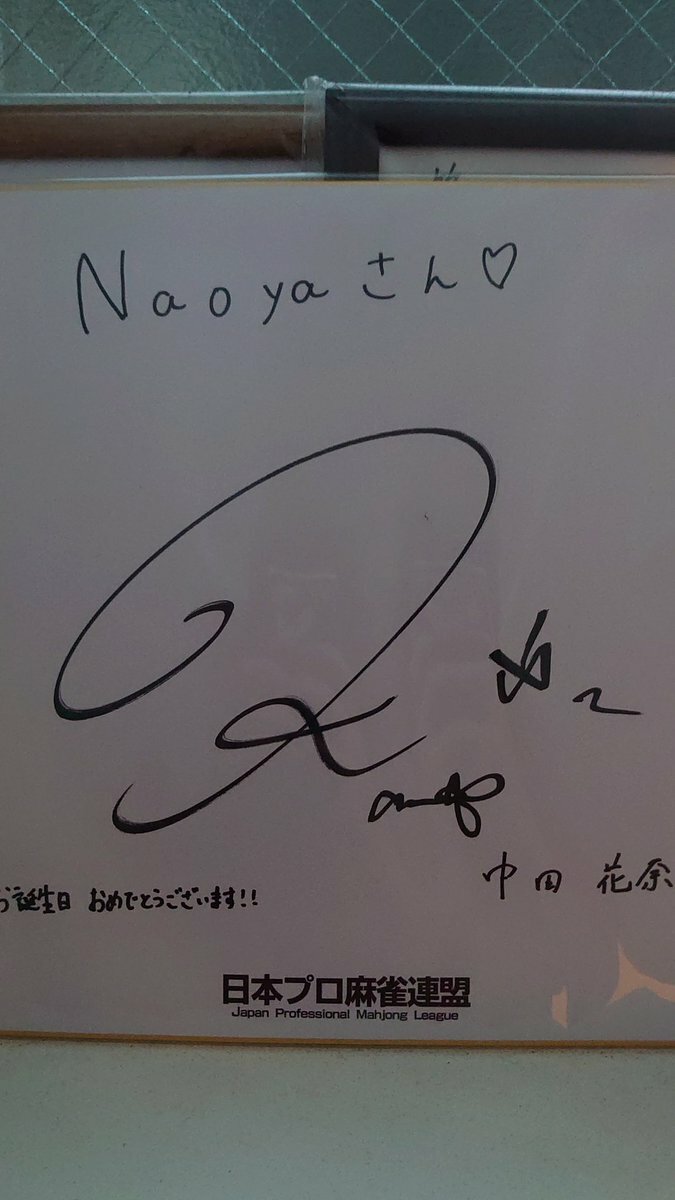 Naoyaさん♡
中田 花奈
お誕生日 おめでとうございます!!
日本プロ麻雀連盟
Japan Professional Mahjong League